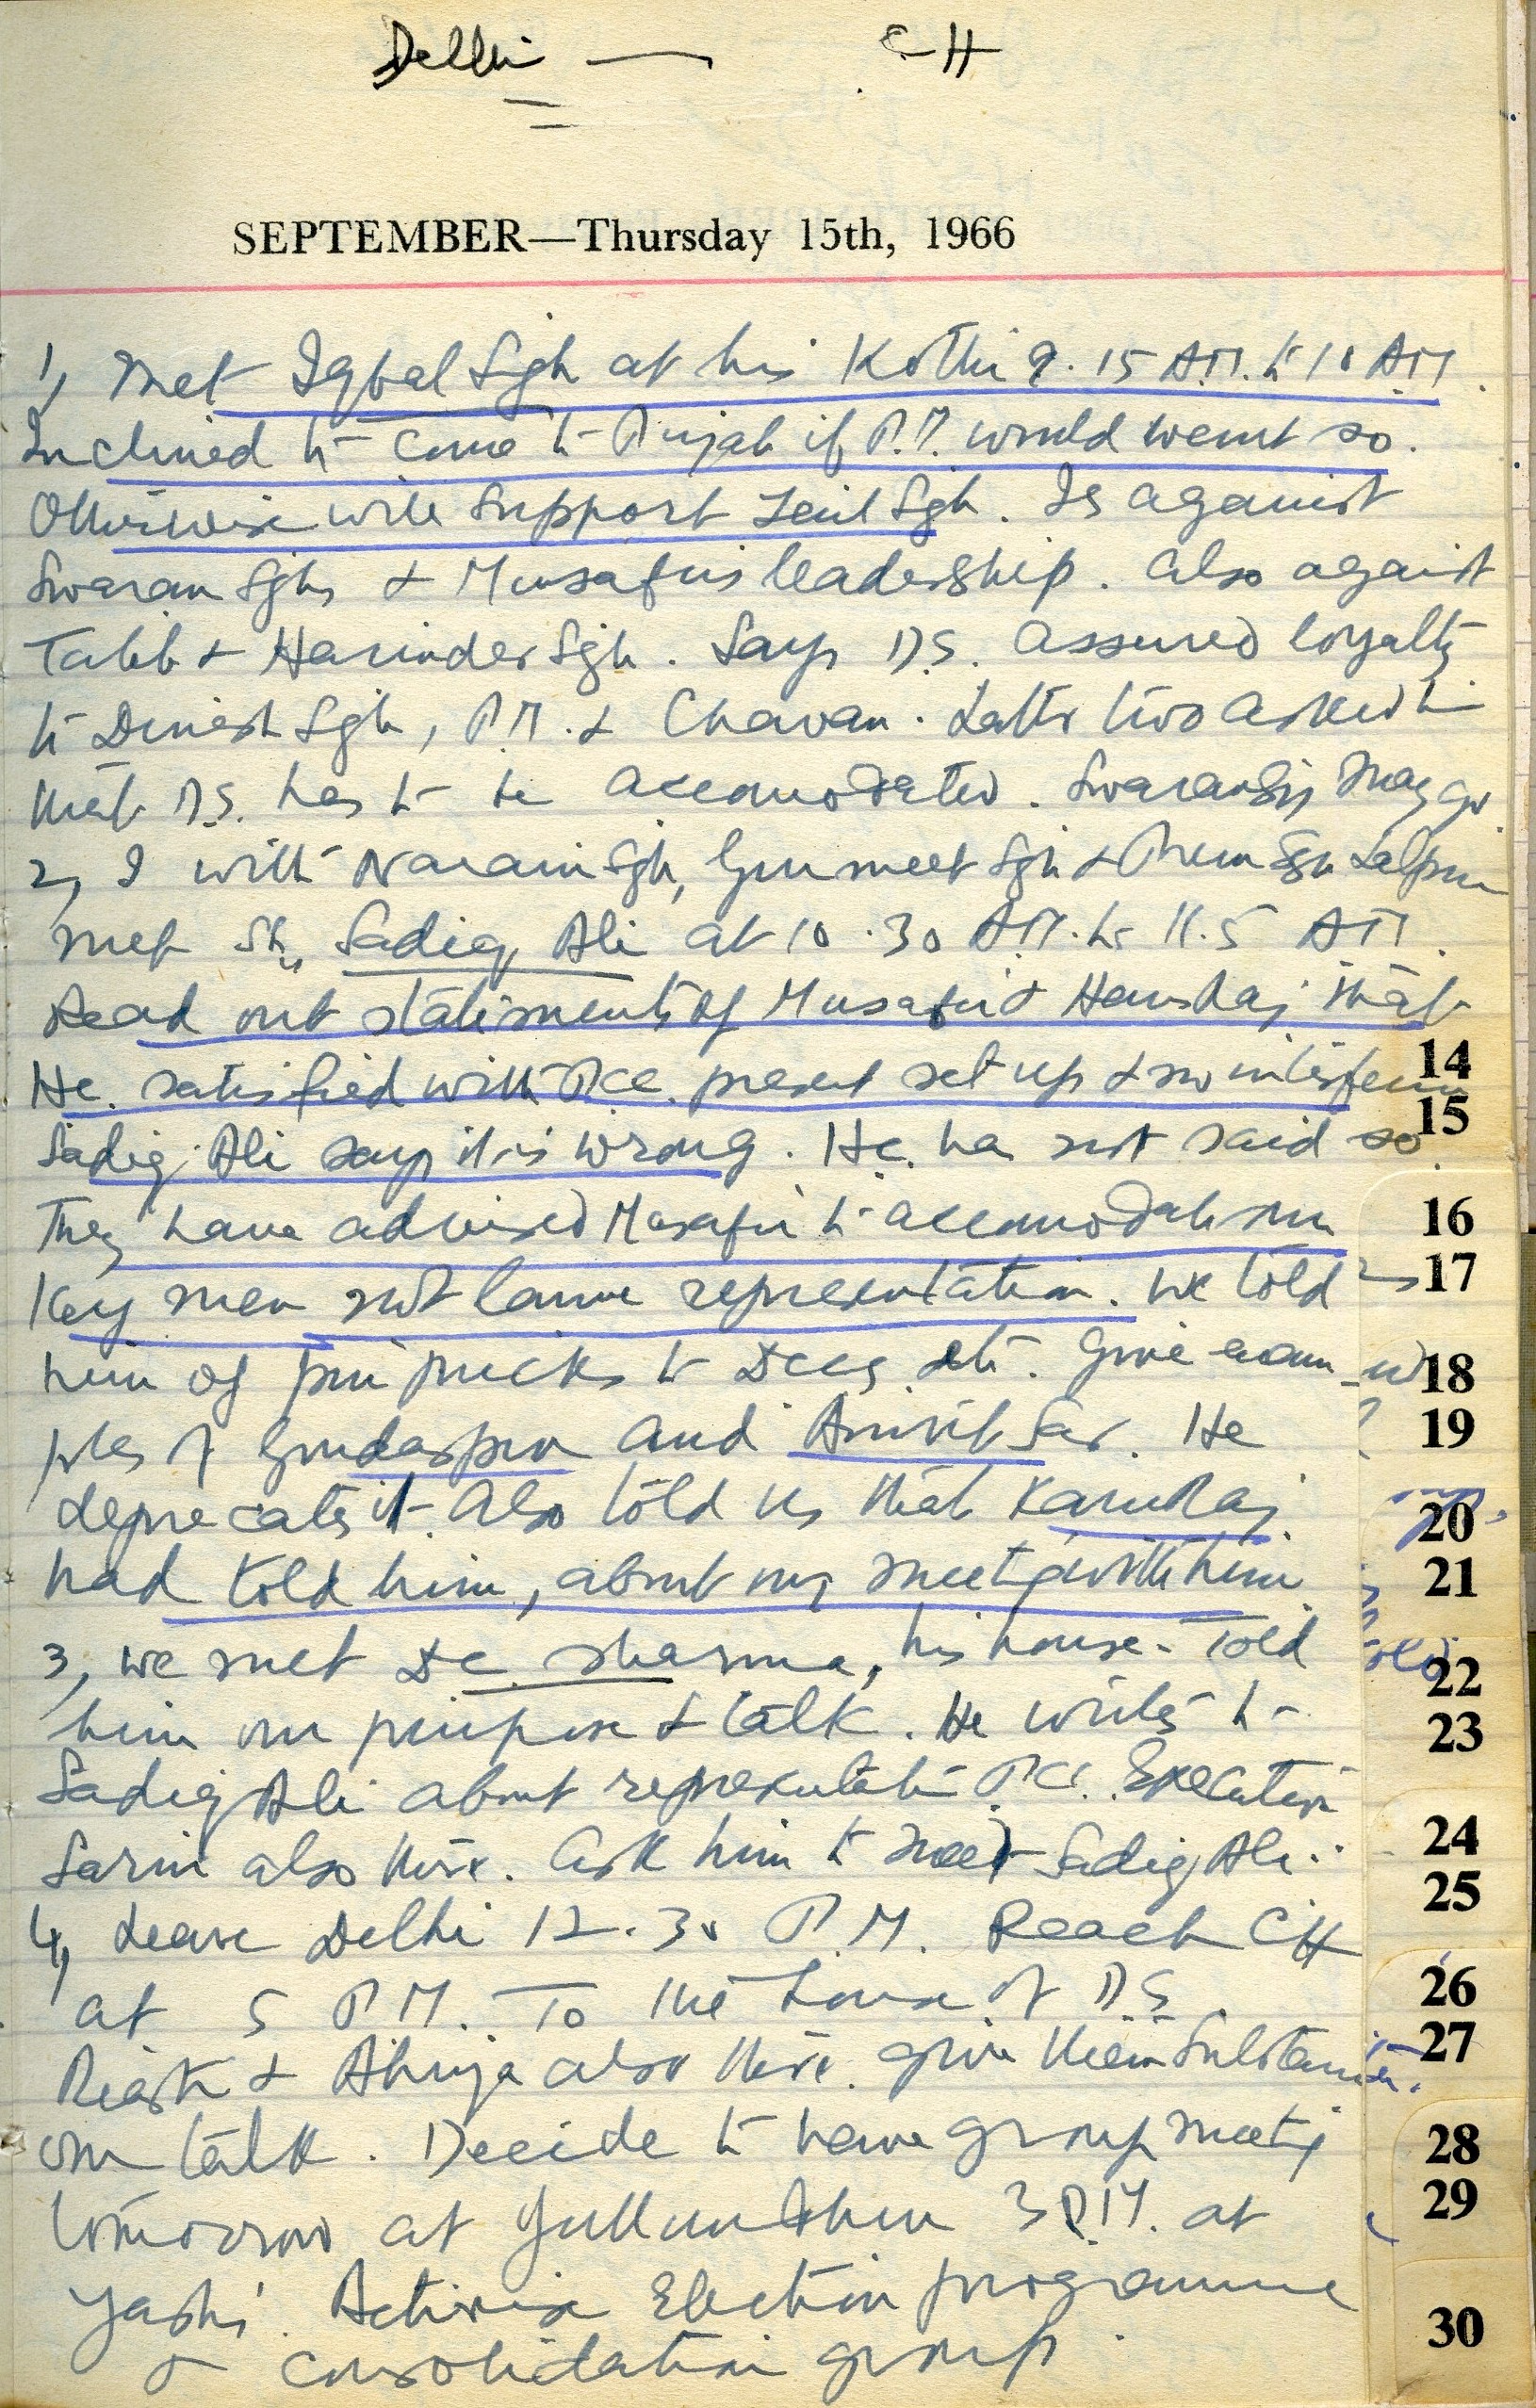 Delhi — CH
SEPTEMBER—Thursday 15th, 1966
1, Met Iqbal Sgh at his Kothi 9.15 AM. to 10 AM.
Inclined to come to Punjab if P.M. would want so.
Otherwise will support Zail Sgh. Is against
Swaran Sghs & Musafirs leadership. Also against
Talib & Harinder Sgh. Says D.S. assured loyalty
to Dinesh Sgh, P.M. & Chavan. Latter two asked
that D.S. has to be accomodated. Swaran Sgh may go.
2, I with Narain Sgh, Gurmeet Sgh & Prem Sgh Lalpura
met Sh. Sadiq Ali at 10.30 AM. to 11.5 AM.
Read out statements of Musafir & Hans Raj that
He satisfied with P.C.C. present set up & no interference
Sadiq Ali says it is wrong. He has not said so.
They have advised Musafir to accomodate
Key men not lame representation. We told
him of pin pricks to DCCs etc. Give exam
ples of Gurdaspur and Amritsar. He
deprecates it. Also told us that Kamraj
had told him, about my meeting with him.
3, We met DC Sharma, his house. Told
him our purpose & talk. He writes to
Sadiq Ali about representation PCC Executive
Sarin also there. Ask him to meet Sadiq Ali.
4, Leave Delhi 12.30 P.M. Reach CH
at 5 P.M. To the house of D.S.
& Ahuja also there. Give them substance
our talk. Decide to have group meeting
tomorrow at Jullundhur 3 P.M. at
Yash's. Activise Election programme
& consolidation group.
14
15
16
17
18
19
20
21
22
23
24
25
26
27
28
29
30